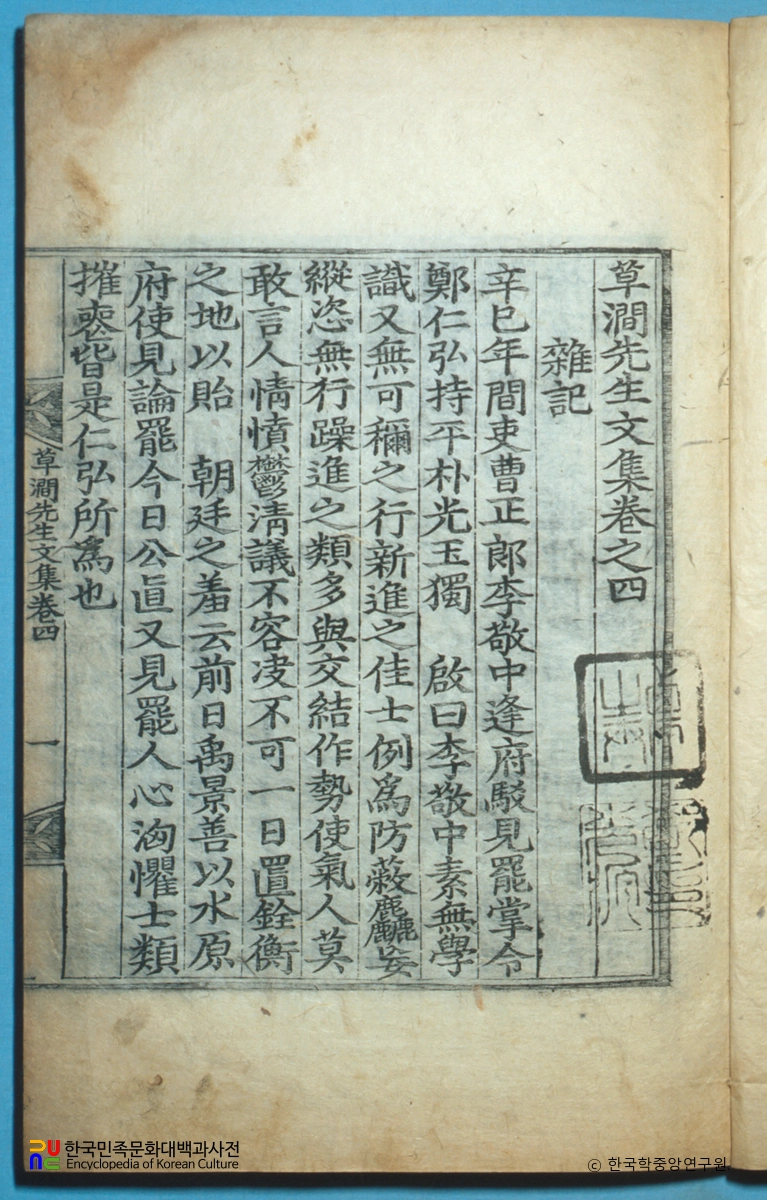 草澗先生文集卷之四
雜記
辛巳年間吏曹正郎李敬中逢府駁見罷掌令
鄭仁弘持平朴光玉獨 啟曰李敬中素無學
識又無可稱之行新進之佳士例爲防蔽麤妄
縱恣無行躁進之類多與交結作勢使氣人莫
敢言人情憤鬱淸議不容决不可一日置銓衡
之地以貽 朝廷之羞云前日禹景善以水原
府使見論罷今日公直又見罷人心洶懼士類
摧喪皆是仁弘所爲也
草澗先生文集卷四
一
한국민족문화대백과사전
Encyclopedia of Korean Culture
© 한국학중앙연구원